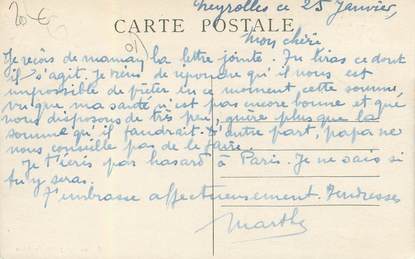 20 €
Meyrolles ce 25 Janvier,
CARTE POSTALE
Mon chéri
Je reçois de maman la lettre jointe. Tu liras ce dont
il s'agit. Je viens de répondre qu'il nous est
impossible de prêter en ce moment cette somme,
vu que ma santé n'est pas encore bonne et que
nous disposons de très peu, guère plus que la
somme qu'il faudrait. D'autre part, papa ne
nous conseille pas de le faire.
Je t'écris par hasard à Paris. Je ne sais si
tu y seras.
J't'embrasse affectueusement. Tendresses
Marthe